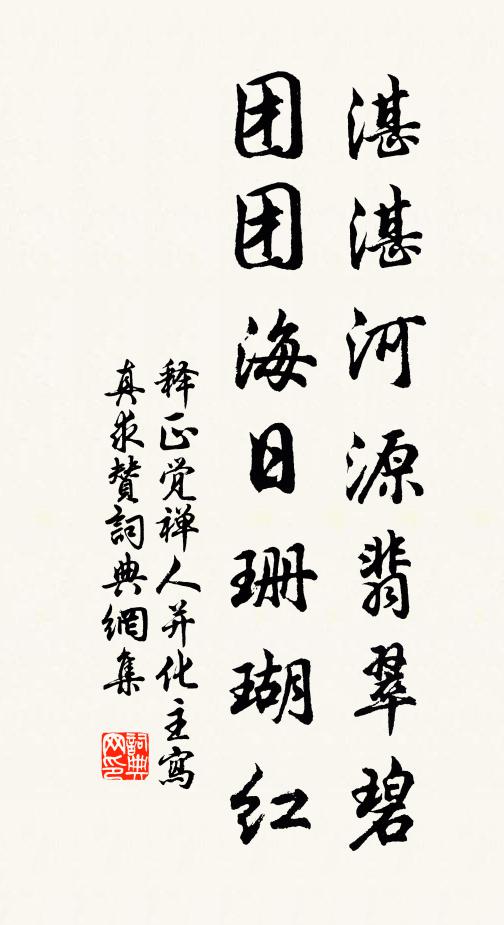 湛湛河源翡翠碧
团团海日珊瑚红
释正觉禅人并化主寫
真求賛詞典網集
詞典
网印